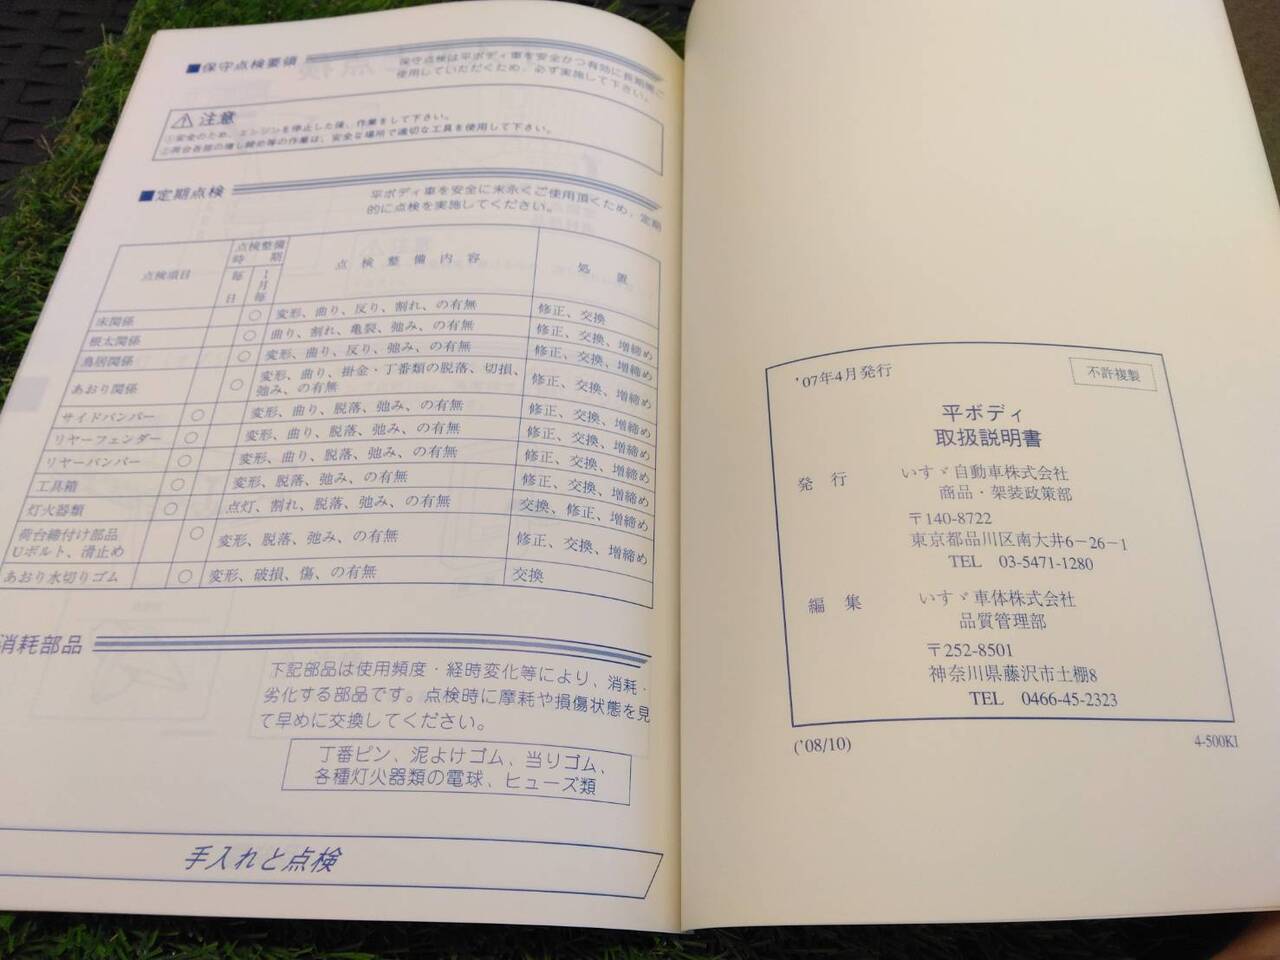 ■保守点検要領
保守点検は平ボディ車を安全かつ有効に長期間ご
使用していただくため、必ず実施して下さい。
注意
①安全のため、エンジンを停止した後、作業をして下さい。
②荷台各部の増し締め等の作業は、安全な場所で適切な工具を使用して下さい。
■定期点検
平ボディ車を安全に末永くご使用頂くため、定期
的に点検を実施してください。
点検項目 点検整備時期 毎日 1月毎 点検整備内容 処置
床関係 ○ 変形、曲り、反り、割れ、の有無 修正、交換
根太関係 ○ 曲り、割れ、亀裂、弛み、の有無 修正、交換、増締め
鳥居関係 ○ 変形、曲り、反り、弛み、の有無 修正、交換、増締め
あおり関係 ○ 変形、曲り、掛金・丁番類の脱落、切損、
弛み、の有無 修正、交換、増締め
サイドバンパー ○ 変形、曲り、脱落、弛み、の有無 修正、交換、増締め
リヤーフェンダー ○ 変形、曲り、脱落、弛み、の有無 修正、交換、増締め
リヤーバンパー ○ 変形、曲り、脱落、弛み、の有無 修正、交換、増締め
工具箱 ○ 変形、脱落、弛み、の有無 修正、交換、増締め
灯火器類 ○ 点灯、割れ、脱落、弛み、の有無 交換、修正、増締め
荷台締付け部品
Uボルト、滑止め ○ 変形、脱落、弛み、の有無 修正、交換、増締め
あおり水切りゴム ○ 変形、破損、傷、の有無 交換
消耗部品
下記部品は使用頻度・経時変化等により、消耗・
劣化する部品です。点検時に摩耗や損傷状態を見
て早めに交換してください。
丁番ピン、泥よけゴム、当りゴム、
各種灯火器類の電球、ヒューズ類
手入れと点検
'07年4月発行
不許複製
平ボディ
取扱説明書
発行 いすゞ自動車株式会社
商品・架装政策部
〒140-8722
東京都品川区南大井6-26-1
TEL 03-5471-1280
編集 いすゞ車体株式会社
品質管理部
〒252-8501
神奈川県藤沢市土棚8
TEL 0466-45-2323
('08/10)
4-500KI